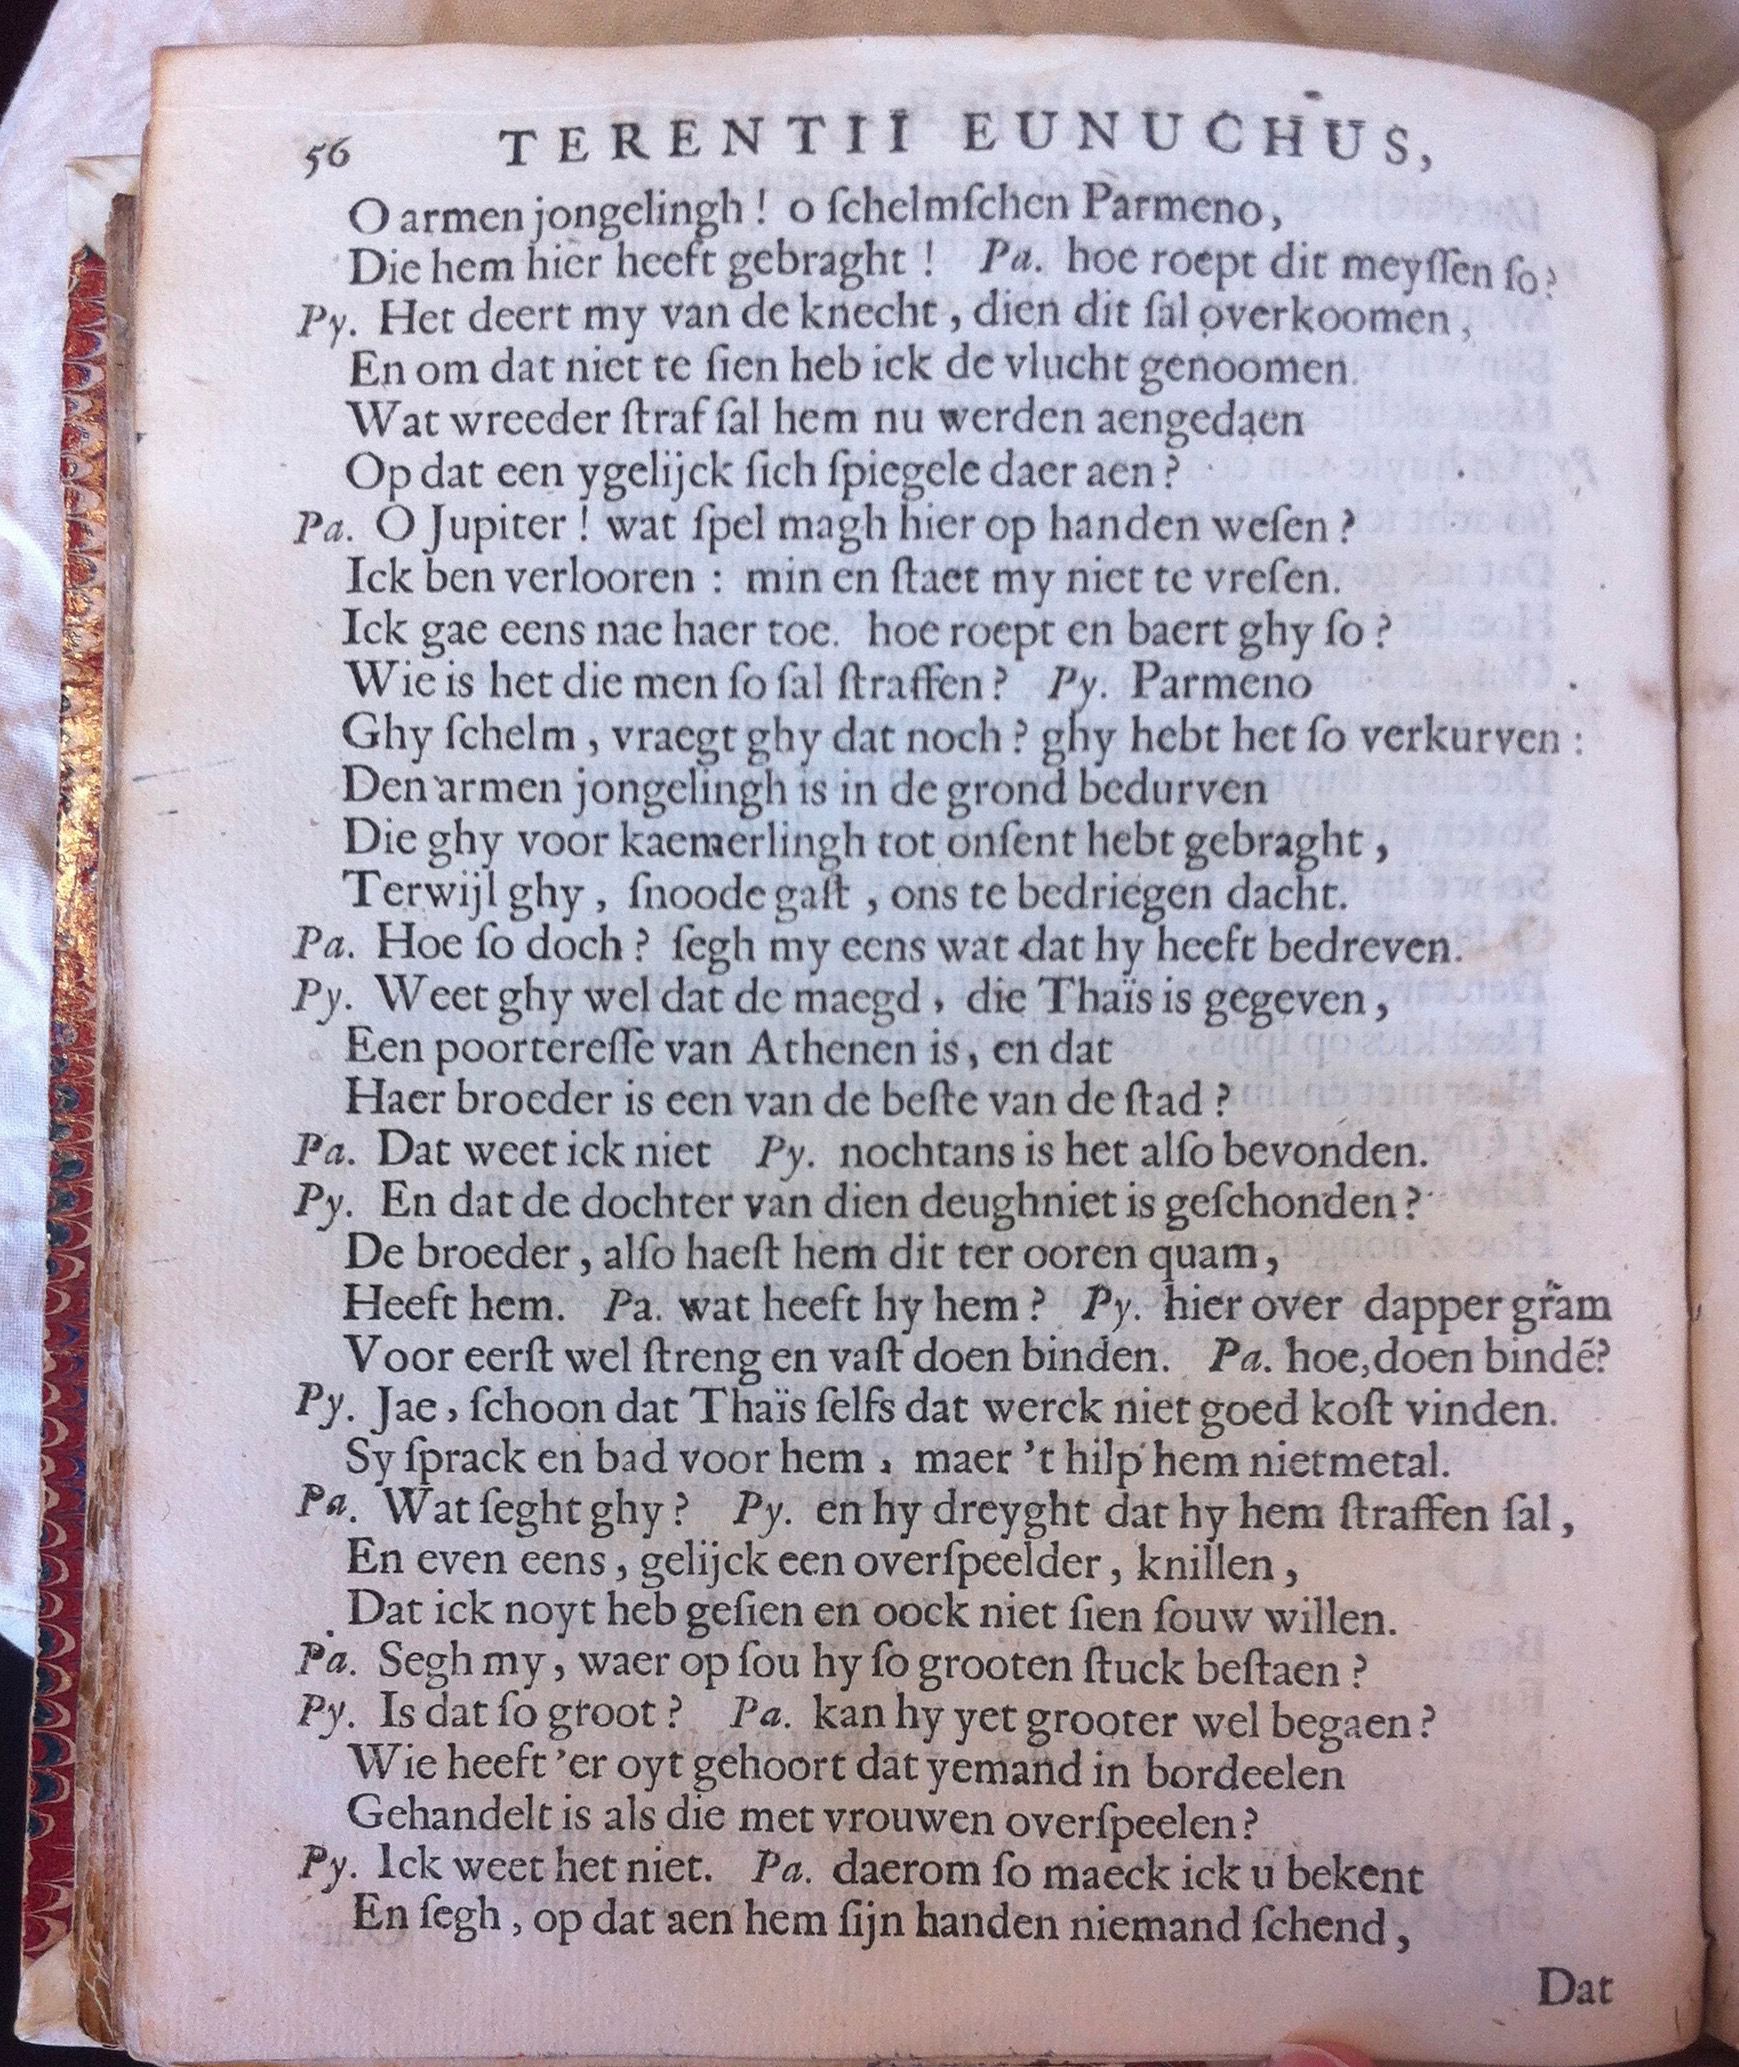 56 TERENTII EUNUCHUS,
O armen jongelingh! o ſchelmſchen Parmeno,
Die hem hier heeft gebraght! Pa. hoe roept dit meyſſen ſo?
Py. Het deert my van de knecht, dien dit ſal overkoomen,
En om dat niet te ſien heb ick de vlucht genoomen.
Wat wreeder ſtraf ſal hem nu werden aengedaen
Op dat een ygelijck ſich ſpiegele daer aen?
Pa. O Jupiter! wat ſpel magh hier op handen weſen?
Ick ben verlooren: min en ſtaet my niet te vreſen.
Ick gae eens nae haer toe. hoe roept en baert ghy ſo?
Wie is het die men ſo ſal ſtraffen? Py. Parmeno
Ghy ſchelm, vraegt ghy dat noch? ghy hebt het ſo verkurven:
Den armen jongelingh is in de grond bedurven
Die ghy voor kaemerlingh tot onſent hebt gebraght,
Terwijl ghy, ſnoode gaſt, ons te bedriegen dacht.
Pa. Hoe ſo doch? ſegh my eens wat dat hy heeft bedreven.
Py. Weet ghy wel dat de maegd, die Thaïs is gegeven,
Een poortereſſe van Athenen is, en dat
Haer broeder is een van de beſte van de ſtad?
Pa. Dat weet ick niet Py. nochtans is het alſo bevonden.
Py. En dat de dochter van dien deughniet is geſchonden?
De broeder, alſo haeſt hem dit ter ooren quam,
Heeft hem. Pa. wat heeft hy hem? Py. hier over dapper gram
Voor eerſt wel ſtreng en vaſt doen binden. Pa. hoe, doen bindẽ?
Py. Jae, ſchoon dat Thaïs ſelfs dat werck niet goed koſt vinden.
Sy ſprack en bad voor hem, maer 't hilp hem niet metal.
Pa. Wat ſeght ghy? Py. en hy dreyght dat hy hem ſtraffen ſal,
En even eens, gelijck een overſpeelder, knillen,
Dat ick noyt heb geſien en oock niet ſien ſouw willen.
Pa. Segh my, waer op ſou hy ſo grooten ſtuck beſtaen?
Py. Is dat ſo groot? Pa. kan hy yet grooter wel begaen?
Wie heeft 'er oyt gehoort dat yemand in bordeelen
Gehandelt is als die met vrouwen overſpeelen?
Py. Ick weet het niet. Pa. daerom ſo maeck ick u bekent
En ſegh, op dat aen hem ſijn handen niemand ſchend,
Dat